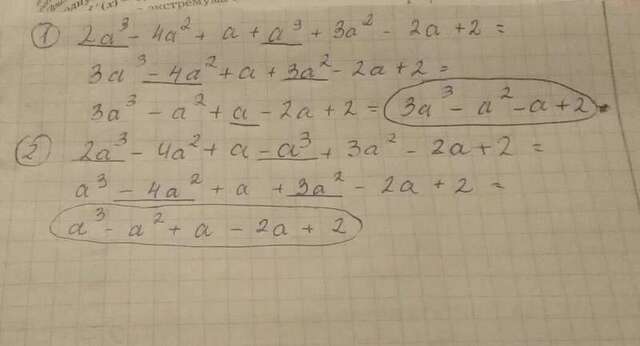 f'(x) = экстремум
① 2a³ - 4a² + a + a³ + 3a² - 2a + 2 =
3a³ - 4a² + a + 3a² - 2a + 2 =
3a³ - a² + a - 2a + 2 = 3a³ - a² - a + 2
② 2a³ - 4a² + a - a³ + 3a² - 2a + 2 =
a³ - 4a² + a + 3a² - 2a + 2 =
a³ - a² + a - 2a + 2